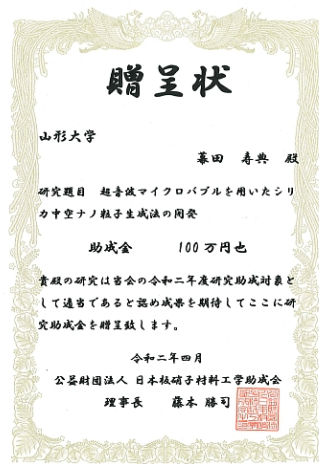 贈呈状
山形大学
幕田 寿典 殿
研究題目 超音波マイクロバブルを用いたシリ
カ中空ナノ粒子生成法の開発
助成金 100万円也
貴殿の研究は当会の令和二年度研究助成対象と
して適当であると認め成果を期待してここに研
究助成金を贈呈致します。
令和二年四月
公益財団法人 日本板硝子材料工学助成会
理事長 藤本 勝司